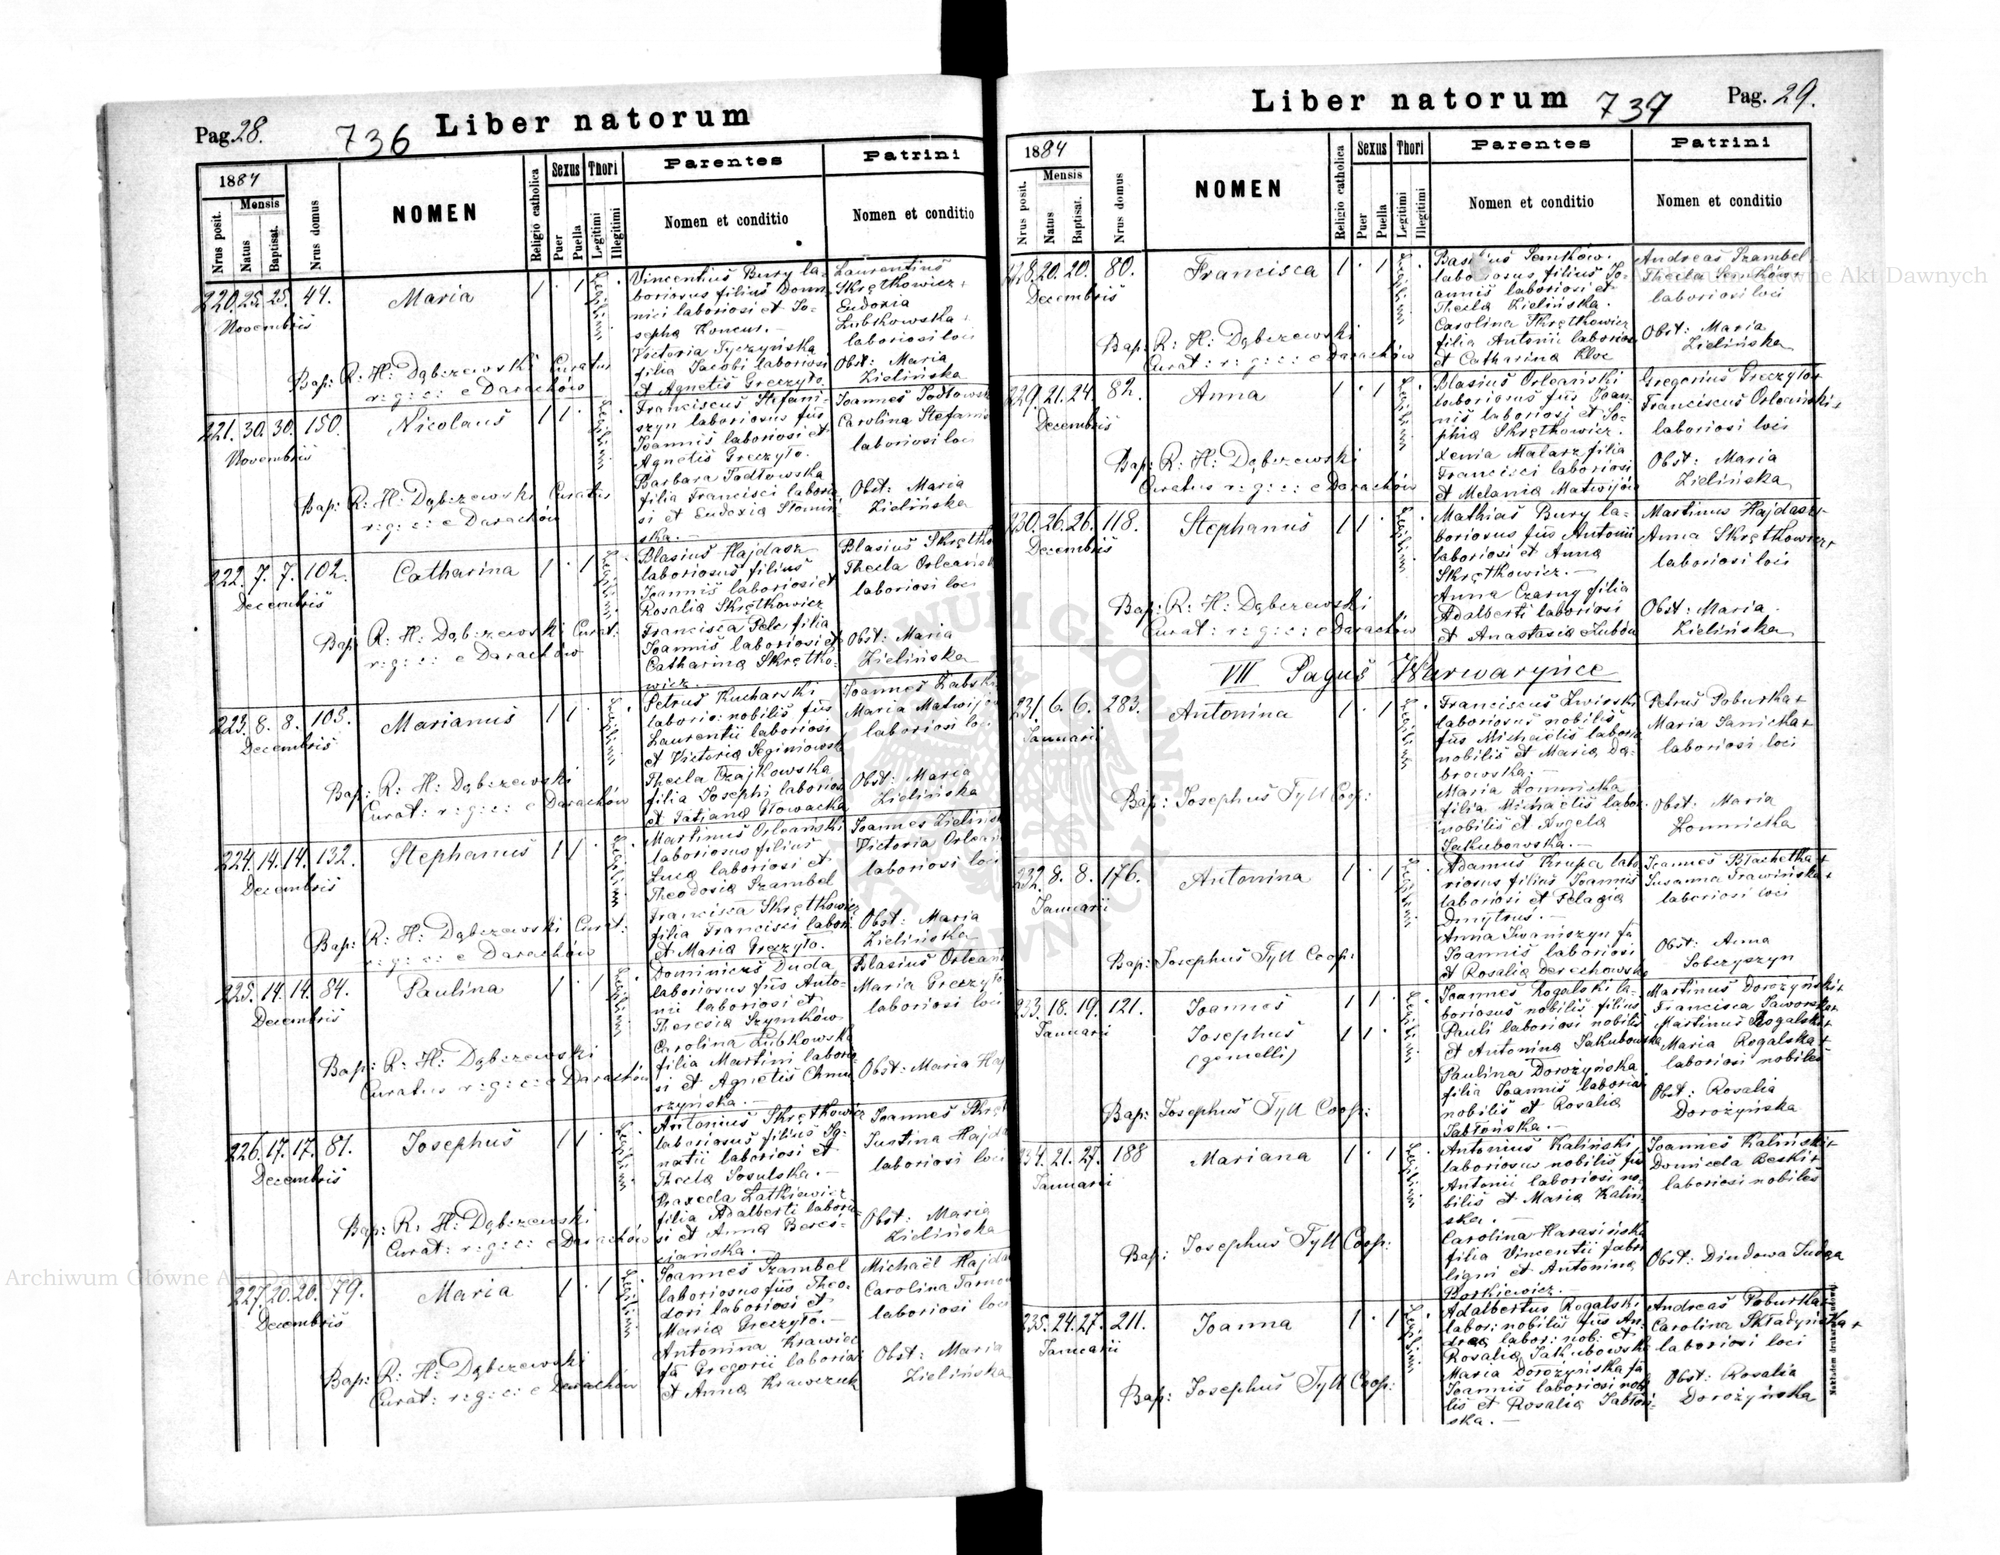 Pag. 28.
736
Liber natorum
1884
Mensis
Nrus posit.
Natus
Baptisat.
Nrus domus
NOMEN
Religio catholica
Sexus
Puer
Puella
Thori
Legitimi
Illegitimi
Parentes
Nomen et conditio
Patrini
Nomen et conditio
220. 25. 25. 44.
Novembris
Maria
1 · 1
Vincentius Bury la-
boriosus filius Domi-
nici laboriosi et Jo-
sepha Koncur. —
Victoria Tyczyńska
filia Jacobi laboriosi
et Agnetis Greczyło
Laurentius
Skrętkowicz +
Eudoxia
Lubkowska +
laboriosi loci
Obst: Maria
Zielińska
Bap: R: H: Dąbczewski Curatus
r: g: c: e Darachów
221. 30. 30. 150.
Novembris
Nicolaus
1 1 ·
Franciscus Stefani-
szyn laboriosus fius
Joannis laboriosi et
Agnetis Greczyło.
Barbara Jodłowska
filia Francisci laborio
si et Eudoxia Słomin-
ska. —
Joannes Jodłowsk
Carolina Stefanis
laboriosi loci
Obst: Maria
Zielińska
Bap: R: H: Dąbczewski Curatus
r: g: c: e Darachów
222. 7. 7. 102.
Decembris
Catharina
1 · 1
Blasius Hajdasz
laboriosus filius
Joannis laboriosi et
Rosalia Skrętkowicz
Francisca Pelc filia
Joannis laboriosi et
Catharina Skrętko-
wicz. —
Blasius Skrętko
Thecla Orleańsk
laboriosi loci
Obst: Maria
Zielińska
Bap: R: H: Dąbczewski Curat:
r: g: c: e Darachów
223. 8. 8. 103.
Decembris
Marianus
1 1 ·
Petrus Kucharski
laborio: nobilis fius
Laurentii laboriosi
et Victoria
Thecla Czajkowska
filia Josephi laboriosi
et Tatjana Głowacka
Joannes Zabski
Maria Matwijów
laboriosi loci
Obst: Maria
Zielińska
Bap: R: H: Dąbczewski
Curat: r: g: c: e Darachów
224. 14. 14. 132.
Decembris
Stephanus
1 1 ·
Martinus Orleański
laboriosus filius
Luca laboriosi et
Theodosia Szambel
Francisca Skrętkowicz
filia Francisci labori
et Maria Greczyło.
Joannes Zielińsk
Victoria Orleań
laboriosi loci
Obst: Maria
Zielińska
Bap: R: H: Dąbczewski Curat:
r: g: c: e Darachów
225. 14. 14. 84.
Decembris
Paulina
1 · 1
Dominicus Duda
laboriosus fius Anto-
nii laboriosi et
Theresia Szymków
Carolina Lubkowska
filia Martini laborio-
si et Agnetis Chmu
rzyńska. —
Blasius Orleań
Maria Greczyło
laboriosi loci
Obst: Maria Haj
Bap: R: H: Dąbczewski
Curatus r: g: c: e Darachów
226. 17. 17. 81.
Decembris
Josephus
1 1 ·
Antonius Skrętkowicz
laboriosus filius Ig-
natii laboriosi et
Thecla Sosulska. —
Praxeda Łatkiewicz
filia Adalberti laborio-
si et Anna Beres-
Joannes Skręt
Justina Hajda
laboriosi loci
Obst: Maria
Zielińska
Bap: R: H: Dąbczewski
Curat: r: g: c: e Darachów
227. 20. 20. 79.
Decembris
Maria
1 · 1
Joannes Szambel
laboriosus fius Theo-
dori laboriosi et
Maria Greczyło. —
Antonina Krawiec
fa Gregorii laboriosi
et Anna Krawczuk
Michaël Hajda
Carolina Tarno
laboriosi loci
Obst: Maria
Zielińska
Bap: R: H: Dąbczewski
Curat: r: g: c: e Darachów
Liber natorum
737
Pag. 29.
1884
Mensis
Nrus posit.
Natus
Baptisat.
Nrus domus
NOMEN
Religio catholica
Sexus
Puer
Puella
Thori
Legitimi
Illegitimi
Parentes
Nomen et conditio
Patrini
Nomen et conditio
228. 20. 20. 80.
Decembris
Francisca
1 · 1
Basilius Semków
laboriosus filius Jo-
annis laboriosi et
Thecla Zielińska.
Carolina Skrętkowicz
filia Antonii laboriosi
et Catharina Kloc
Andreas Szambel
Thecla Semków
laboriosi loci
Obst: Maria
Zielińska
Bap: R: H: Dąbczewski
Curat: r: g: c: e Darachów
229. 21. 24. 82.
Decembris
Anna
1 · 1
Blasius Orleański
laboriosus fius Joan-
nis laboriosi et So-
phia Skrętkowicz.
Xenia Malarz filia
Francisci laboriosi
et Melania Matwijów
Gregorius Greczyło +
Franciscus Orleański +
laboriosi loci
Obst: Maria
Zielińska
Bap: R: H: Dąbczewski
Curatus r: g: c: e Darachów
230. 26. 26. 118.
Decembris
Stephanus
1 1 ·
Mathias Bury la-
boriosus fius Antonii
laboriosi et Anna
Skrętkowicz. —
Anna Czarny filia
Adalberti laboriosi
et Anastasia
Martinus Hajdasz +
Anna Skrętkowicz +
laboriosi loci
Obst: Maria
Zielińska
Bap: R: H: Dąbczewski
Curat: r: g: c: e Darachów
VII Pagus Warwaryńce
231. 6. 6. 283.
Januarii
Antonina
1 · 1
Franciscus Zwirski
laboriosus nobilis
fius Michaëlis laborio
nobilis et Maria Dą-
browska. —
Maria Łomnicka
filia Michaëlis labor
nobilis et Angela
Jakubowska. —
Petrus Poburka +
Maria Sanicka +
laboriosi loci
Obst: Maria
Łomnicka
Bap: Josephus Tyll Coop:
232. 8. 8. 176.
Januarii
Antonina
1 · 1
Adamus Krupa labo
riosus filius Joannis
laboriosi et Pelagia
Dmytrus. —
Anna Iwaniszyn fa
Joannis laboriosi
et Rosalia Derechowska
Joannes Błachetka +
Susanna Trawińska +
laboriosi loci
Obst: Anna
Sobczyszyn
Bap: Josephus Tyll Coop:
233. 18. 19. 121.
Januarii
Joannes
1 1 ·
Josephus
1 1 ·
(gemelli)
Joannes Rogalski la-
boriosus nobilis filius
Pauli laboriosi nobilis
et Antonina Jakubowska
Paulina Dorożyńska
filia Joannis laboriosi
nobilis et Rosalia
Jabłońska. —
Martinus Dorożyński +
Francisca Jaworska +
Martinus Rogalski +
Maria Rogalska +
laboriosi nobiles
Obst: Rosalia
Dorożyńska
Bap: Josephus Tyll Coop:
234. 21. 27. 188
Januarii
Mariana
1 · 1
Antonius Kaliński
laboriosus nobilis fius
Antonii laboriosi no-
bilis et Maria Kaliń-
ska. —
Carolina Harasińska
filia Vincentii fabri
ligni et Antonina
Borkiewicz. —
Joannes Kaliński +
Domicela Beski +
laboriosi nobiles
Obst: Dindowa Justyna
Bap: Josephus Tyll Coop:
235. 24. 27. 211.
Januarii
Joanna
1 · 1
Adalbertus Rogalski
labor: nobilis fius An-
drea labor: nob: et
Rosalia Jakubowska
Maria Dorożyńska fa
Joannis laboriosi nobi
lis et Rosalia Jabłoń-
ska. —
Andreas Poburka +
Carolina Składyńska +
laboriosi loci
Obst: Rosalia
Dorożyńska
Bap: Josephus Tyll Coop:
Archiwum Główne Akt Dawnych
Archiwum Główne Akt Dawnych